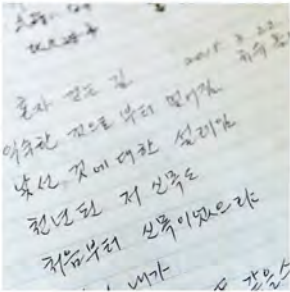 혼자 걷는 길
2018. 3. 22
익숙한 것으로 부터 멀어짐
낯선 것에 대한 설레임
천년된 저 신목도
처음부터 신목이었으랴
내가